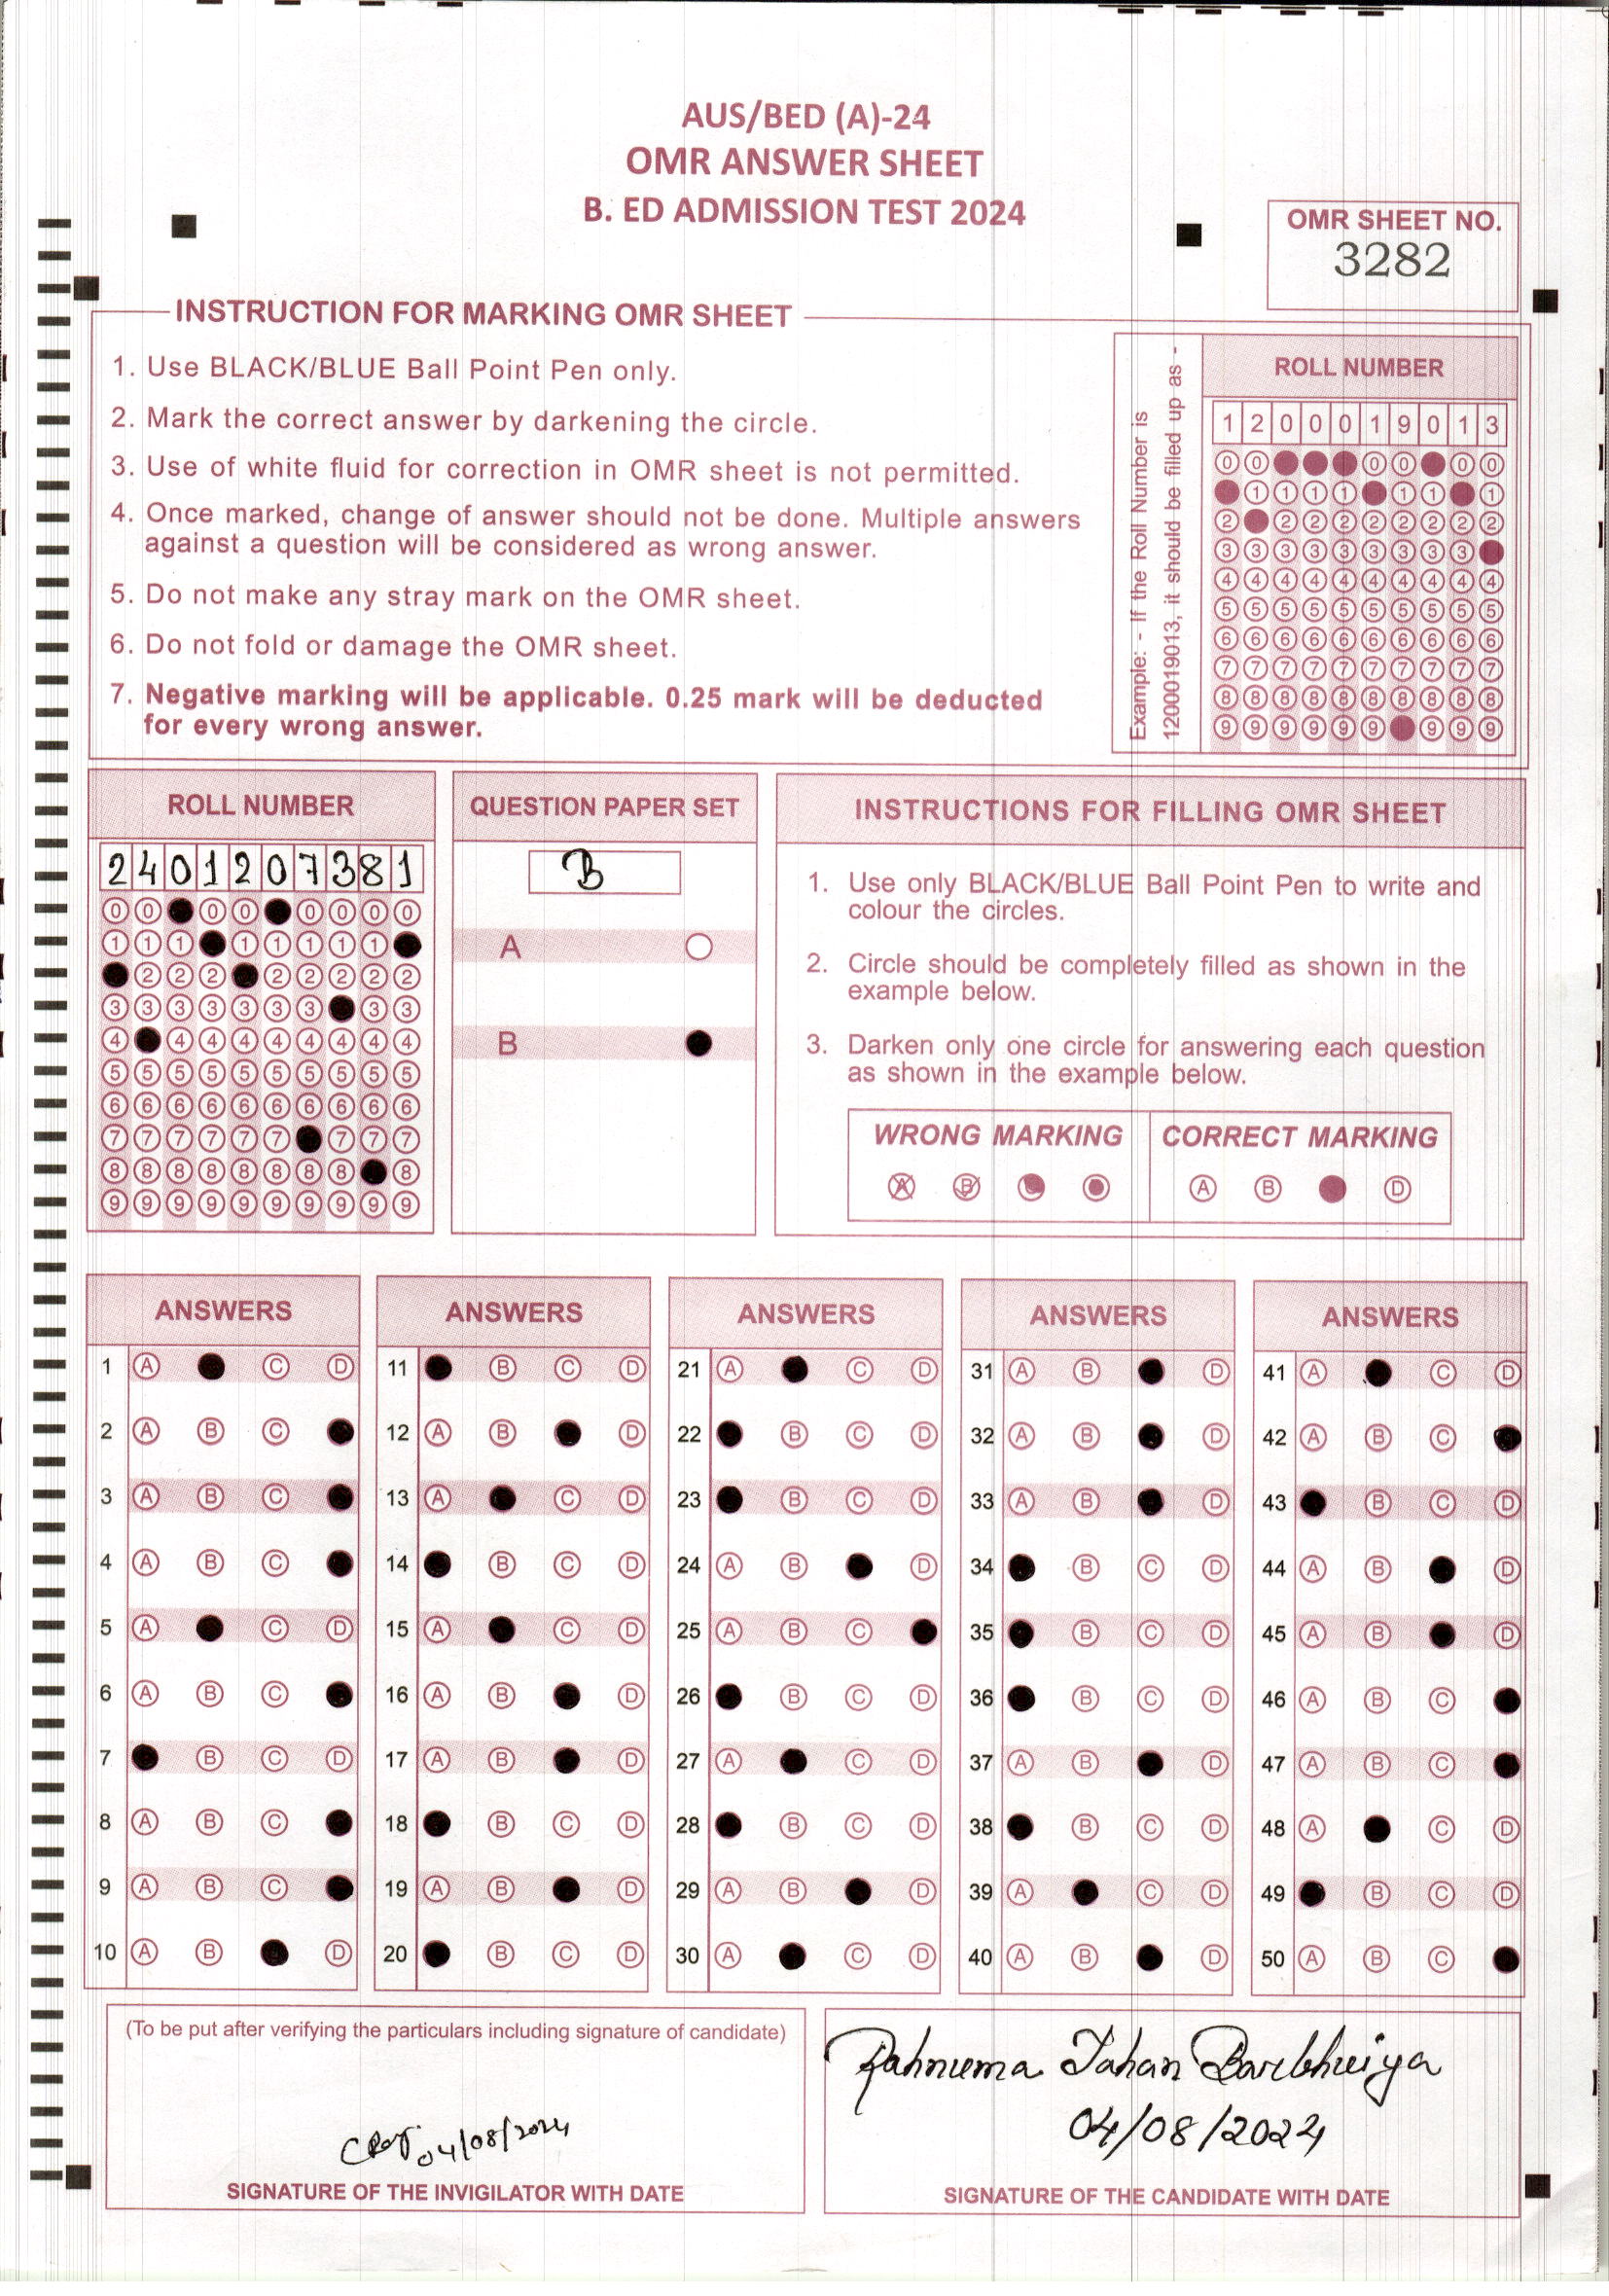 AUS/BED (A)-24
OMR ANSWER SHEET
B. ED ADMISSION TEST 2024
OMR SHEET NO.
3282
INSTRUCTION FOR MARKING OMR SHEET
1. Use BLACK/BLUE Ball Point Pen only.
2. Mark the correct answer by darkening the circle.
3. Use of white fluid for correction in OMR sheet is not permitted.
4. Once marked, change of answer should not be done. Multiple answers
against a question will be considered as wrong answer.
5. Do not make any stray mark on the OMR sheet.
6. Do not fold or damage the OMR sheet.
7. Negative marking will be applicable. 0.25 mark will be deducted
for every wrong answer.
Example: - If the Roll Number is
1200019013, it should be filled up as -
ROLL NUMBER
1 2 0 0 0 1 9 0 1 3
0 0 0 0 0 0
1 1 1 1 1 1 1
2 2 2 2 2 2 2 2 2
3 3 3 3 3 3 3 3 3
4 4 4 4 4 4 4 4 4 4
5 5 5 5 5 5 5 5 5 5
6 6 6 6 6 6 6 6 6 6
7 7 7 7 7 7 7 7 7 7
8 8 8 8 8 8 8 8 8 8
9 9 9 9 9 9 9 9 9
ROLL NUMBER
2 4 0 1 2 0 7 3 8 1
0 0 0 0 0 0 0 0
1 1 1 1 1 1 1 1
2 2 2 2 2 2 2 2
3 3 3 3 3 3 3 3 3
4 4 4 4 4 4 4 4 4
5 5 5 5 5 5 5 5 5 5
6 6 6 6 6 6 6 6 6 6
7 7 7 7 7 7 7 7 7
8 8 8 8 8 8 8 8 8
9 9 9 9 9 9 9 9 9 9
QUESTION PAPER SET
B
A
B
INSTRUCTIONS FOR FILLING OMR SHEET
1. Use only BLACK/BLUE Ball Point Pen to write and
colour the circles.
2. Circle should be completely filled as shown in the
example below.
3. Darken only one circle for answering each question
as shown in the example below.
WRONG MARKING
A B
CORRECT MARKING
A B D
ANSWERS
1 A C D
2 A B C
3 A B C
4 A B C
5 A C D
6 A B C
7 B C D
8 A B C
9 A B C
10 A B D
ANSWERS
11 B C D
12 A B D
13 A C D
14 B C D
15 A C D
16 A B D
17 A B D
18 B C D
19 A B D
20 B C D
ANSWERS
21 A C D
22 B C D
23 B C D
24 A B D
25 A B C
26 B C D
27 A C D
28 B C D
29 A B D
30 A C D
ANSWERS
31 A B D
32 A B D
33 A B D
34 B C D
35 B C D
36 B C D
37 A B D
38 B C D
39 A C D
40 A B D
ANSWERS
41 A C D
42 A B C
43 B C D
44 A B D
45 A B D
46 A B C
47 A B C
48 A C D
49 B C D
50 A B C
(To be put after verifying the particulars including signature of candidate)
04/08/2024
SIGNATURE OF THE INVIGILATOR WITH DATE
Rahnuma Jahan Barbhuiya
04/08/2024
SIGNATURE OF THE CANDIDATE WITH DATE